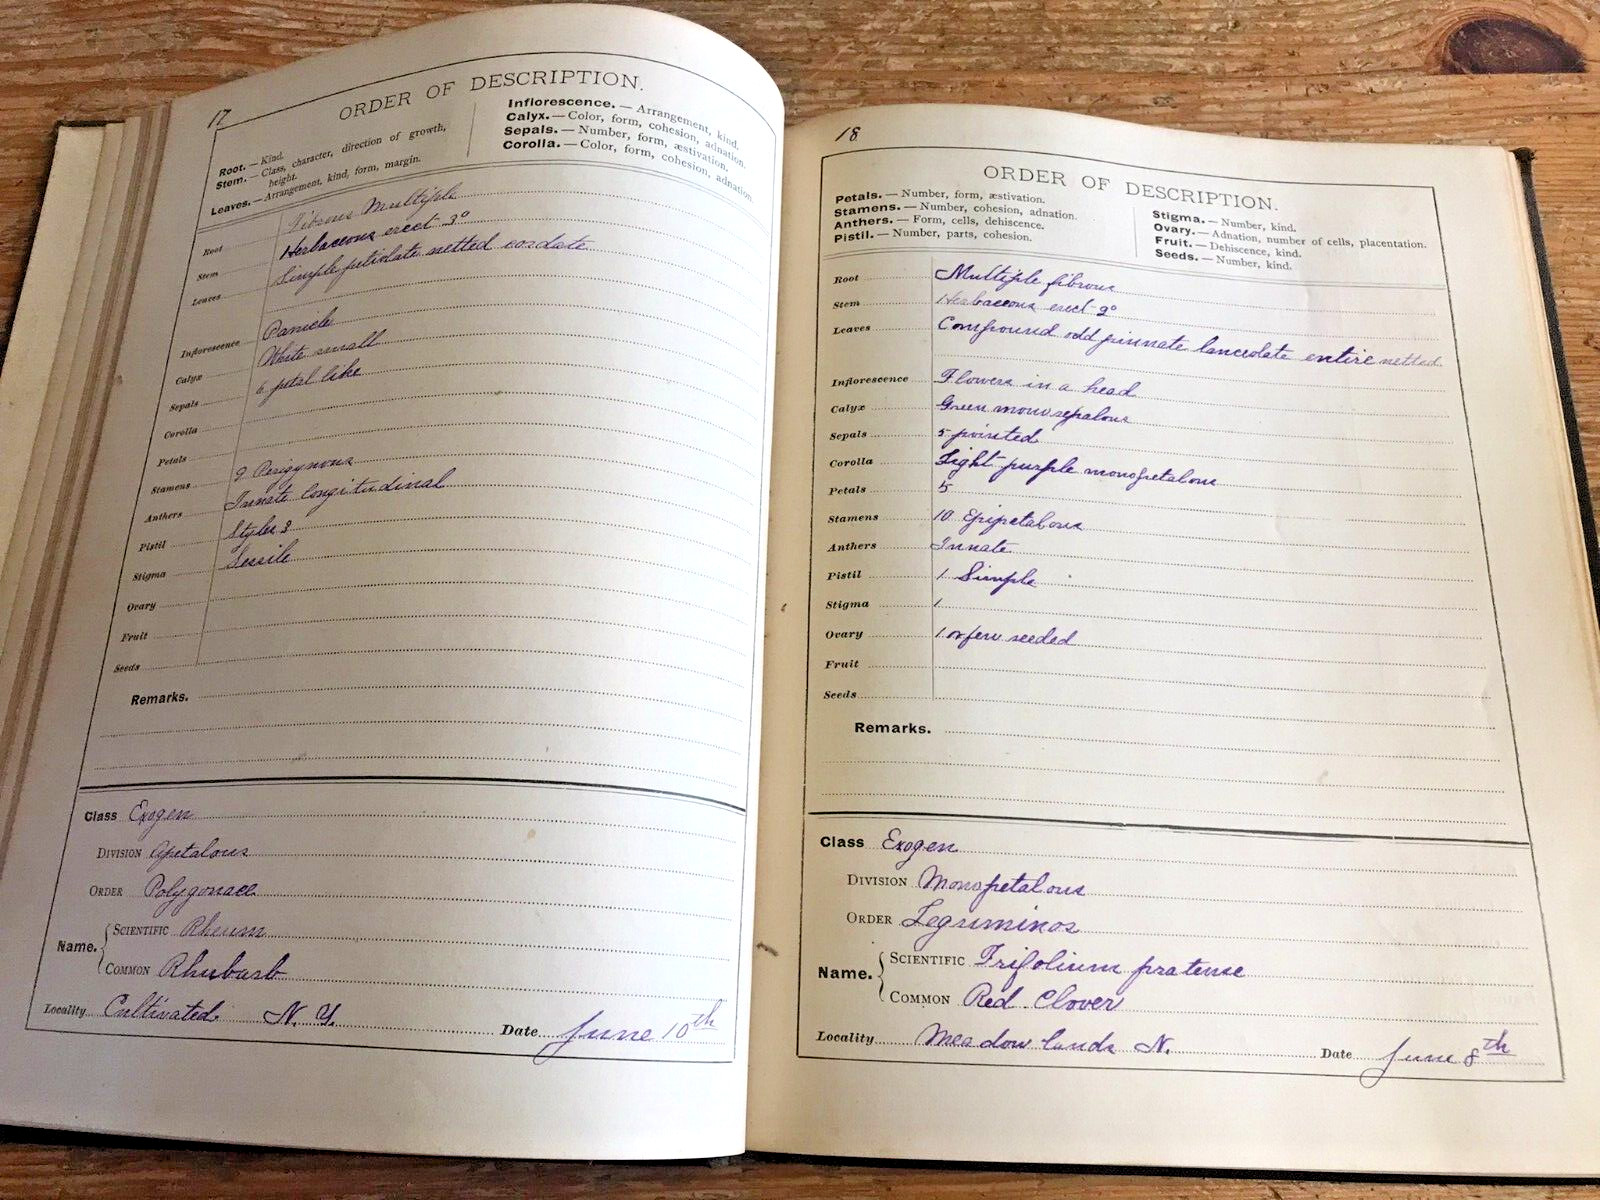 17
ORDER OF DESCRIPTION.
Root. — Kind.
Stem. — Class, character, direction of growth,
height.
Leaves. — Arrangement, kind, form, margin.
Inflorescence. — Arrangement, kind.
Calyx. — Color, form, cohesion, adnation.
Sepals. — Number, form, æstivation.
Corolla. — Color, form, cohesion, adnation.
Root Fibrous Multiple
Stem Herbaceous erect 3°
Leaves Simple petiolate netted cordate
Inflorescence Panicle
Calyx White small
Sepals 6 petal like
Corolla
Petals
Stamens 9 Perigynous
Anthers Innate longitudinal
Pistil Styles 3
Stigma Sessile
Ovary
Fruit
Seeds
Remarks.
Class Exogen
Division Apetalous
Order Polygonace
Name. Scientific Rheum
Common Rhubarb
Locality Cultivated N. Y. Date June 10th
18
ORDER OF DESCRIPTION.
Petals. — Number, form, æstivation.
Stamens. — Number, cohesion, adnation.
Anthers. — Form, cells, dehiscence.
Pistil. — Number, parts, cohesion.
Stigma. — Number, kind.
Ovary. — Adnation, number of cells, placentation.
Fruit. — Dehiscence, kind.
Seeds. — Number, kind.
Root Multiple fibrous
Stem Herbaceous erect 2°
Leaves Compound odd pinnate lanceolate entire netted
Inflorescence Flowers in a head
Calyx Green monosepalous
Sepals 5 pointed
Corolla Light purple monopetalous
Petals 5
Stamens 10 Epipetalous
Anthers Innate
Pistil 1 Simple
Stigma 1
Ovary 1 or few seeded
Fruit
Seeds
Remarks.
Class Exogen
Division Monopetalous
Order Leguminos
Name. Scientific Trifolium pratense
Common Red Clover
Locality Meadow lands N. Date June 8th